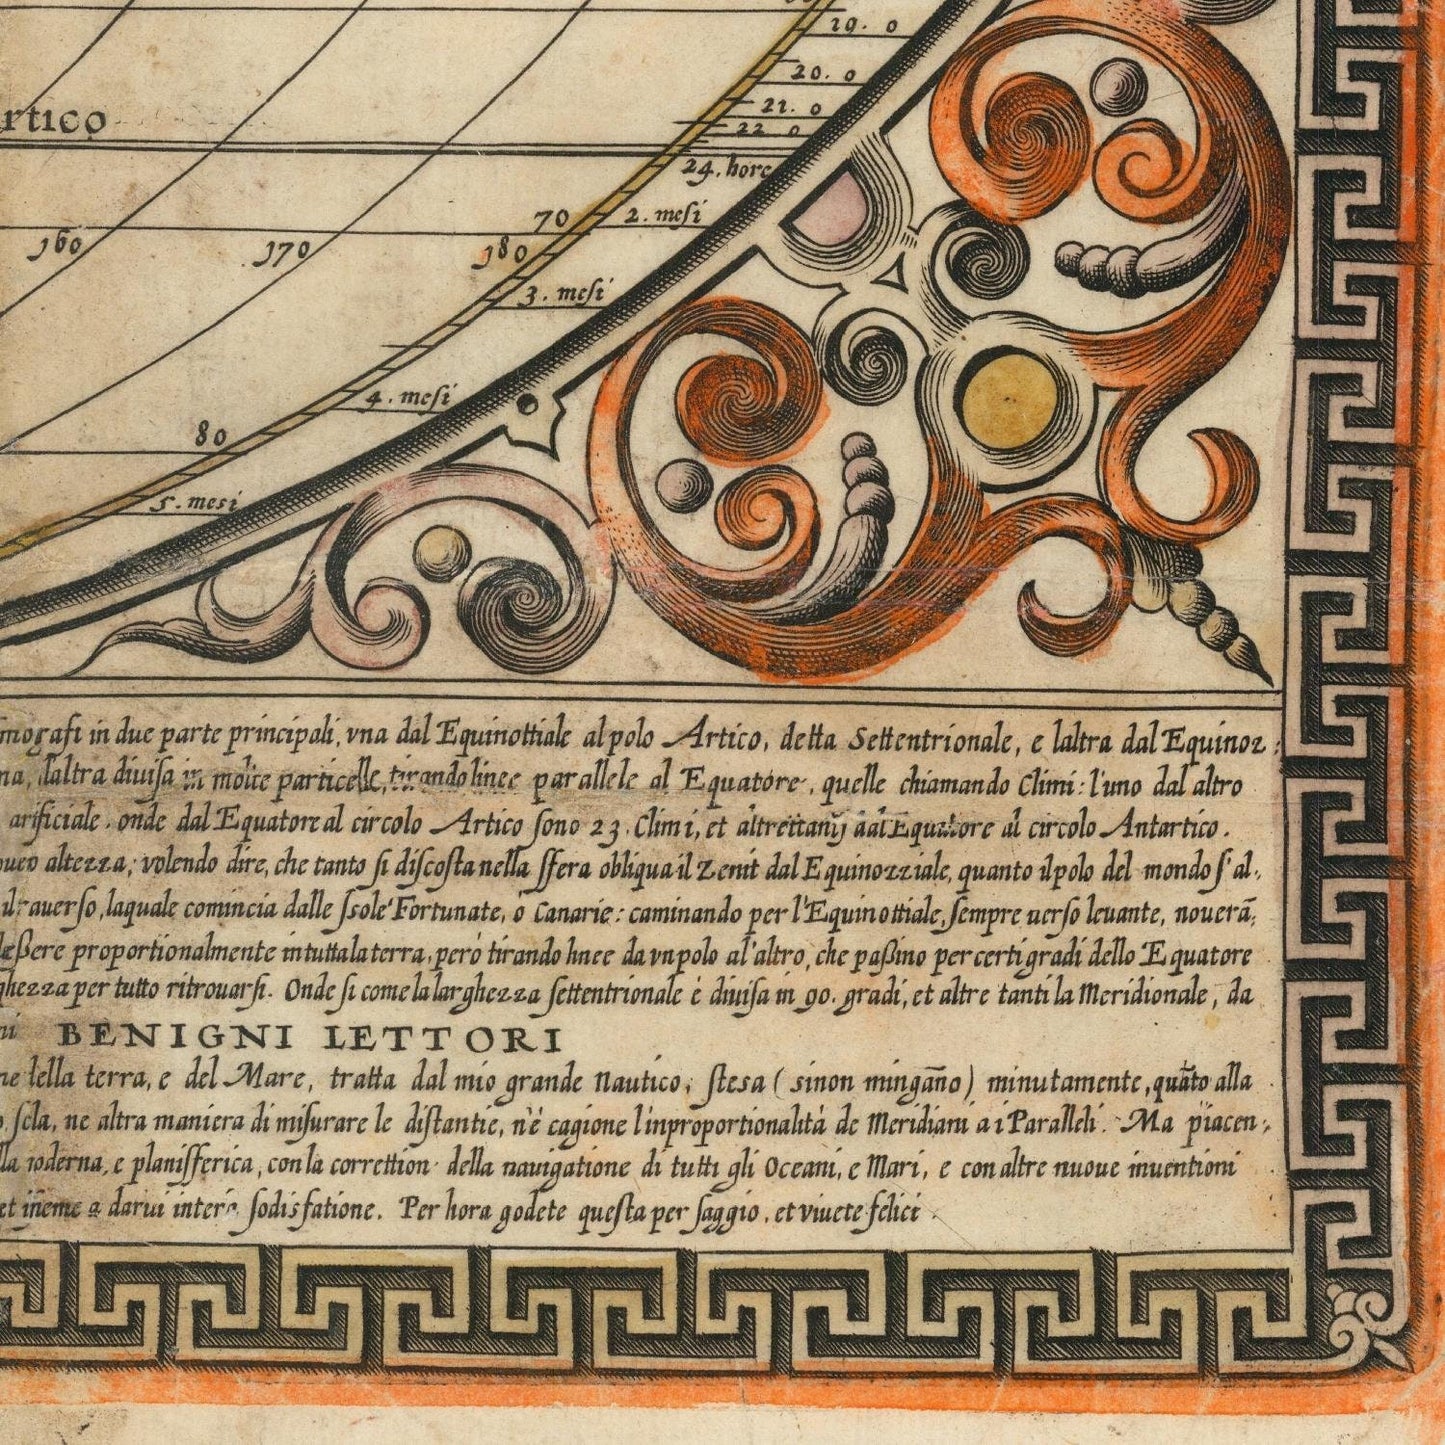 19. 0
20. 0
21. 0
rtico
22 0
24. hore
70 2. mesi
160 170 180
3. mesi
4. mesi
80
5. mesi
in due parte principali, vna dal Equinottiale al polo Artico, detta Settentrionale, e laltra dal Equinoz:
laltra diuisa in molte particelle, tirando linee parallele al Equatore, quelle chiamando Climi: l'uno dal altro
arificiale. onde dal Equatore al circolo Artico sono 23. Climi, et altrettanti dal Equatore al circolo Antartico.
altezza; volendo dire, che tanto si discosta nella sfera obliqua il Zenit dal Equinozziale, quanto il polo del mondo s'al:
lauerso, laquale comincia dalle Isole Fortunate, o Canarie: caminando per l'Equinottiale, sempre uerso leuante, nouerā:
proportionalmente in tutta la terra, però tirando linee da vn polo al'altro, che paßino per certi gradi dello Equatore
ghezza per tutto ritrouarsi. Onde si come la larghezza settentrionale è diuisa in 90. gradi, et altre tanti la Meridionale, da
BENIGNI LETTORI
della terra, e del Mare, tratta dal mio grande nautico, stesa (sinon mingāno) minutamente, quāto alla
ne altra maniera di misurare le distantie, n'è cagione l'inproportionalità de Meridiani a i Paralleli. Ma piacen:
moderna, e planisferica, con la correttion della nauigatione di tutti gli Oceani, e Mari, e con altre nuoue inuentioni
a darui sodisfatione. Per hora godete questa per saggio, et viuete felici.